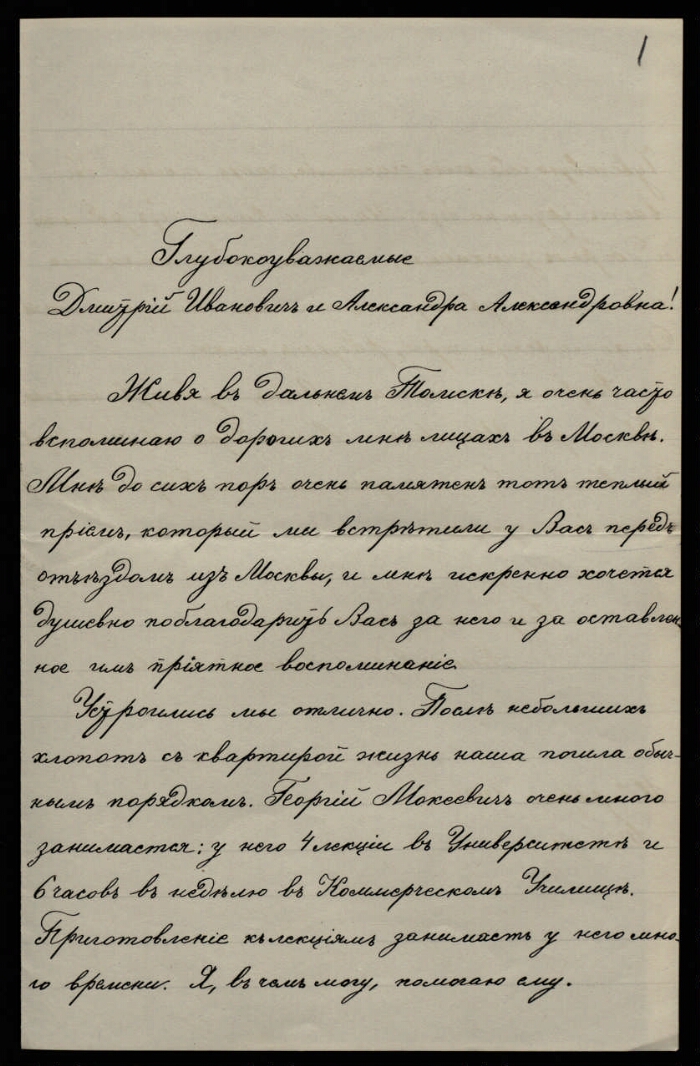 1
Глубокоуважаемые
Дмитрій Ивановичъ и Александра Александровна!
Живя въ дальнемъ Томскѣ, я очень часто
вспоминаю о дорогихъ мнѣ лицахъ въ Москвѣ.
Мнѣ до сихъ поръ очень памятенъ тотъ теплый
пріемъ, который мы встрѣтили у Васъ передъ
отъѣздомъ изъ Москвы, и мнѣ искренно хочется
душевно поблагодарить Васъ за него и за оставлен-
ное имъ пріятное воспоминаніе.
Устроились мы отлично. Послѣ небольшихъ
хлопотъ съ квартирой жизнь наша пошла обыч-
нымъ порядкомъ. Георгій Мокеевичъ очень много
занимается: у него 4 лекціи въ Университетѣ и
6 часовъ въ недѣлю въ Коммерческомъ Училищѣ.
Приготовленіе къ лекціямъ занимаетъ у него мно-
го времени. Я, въ чемъ могу, помогаю ему.